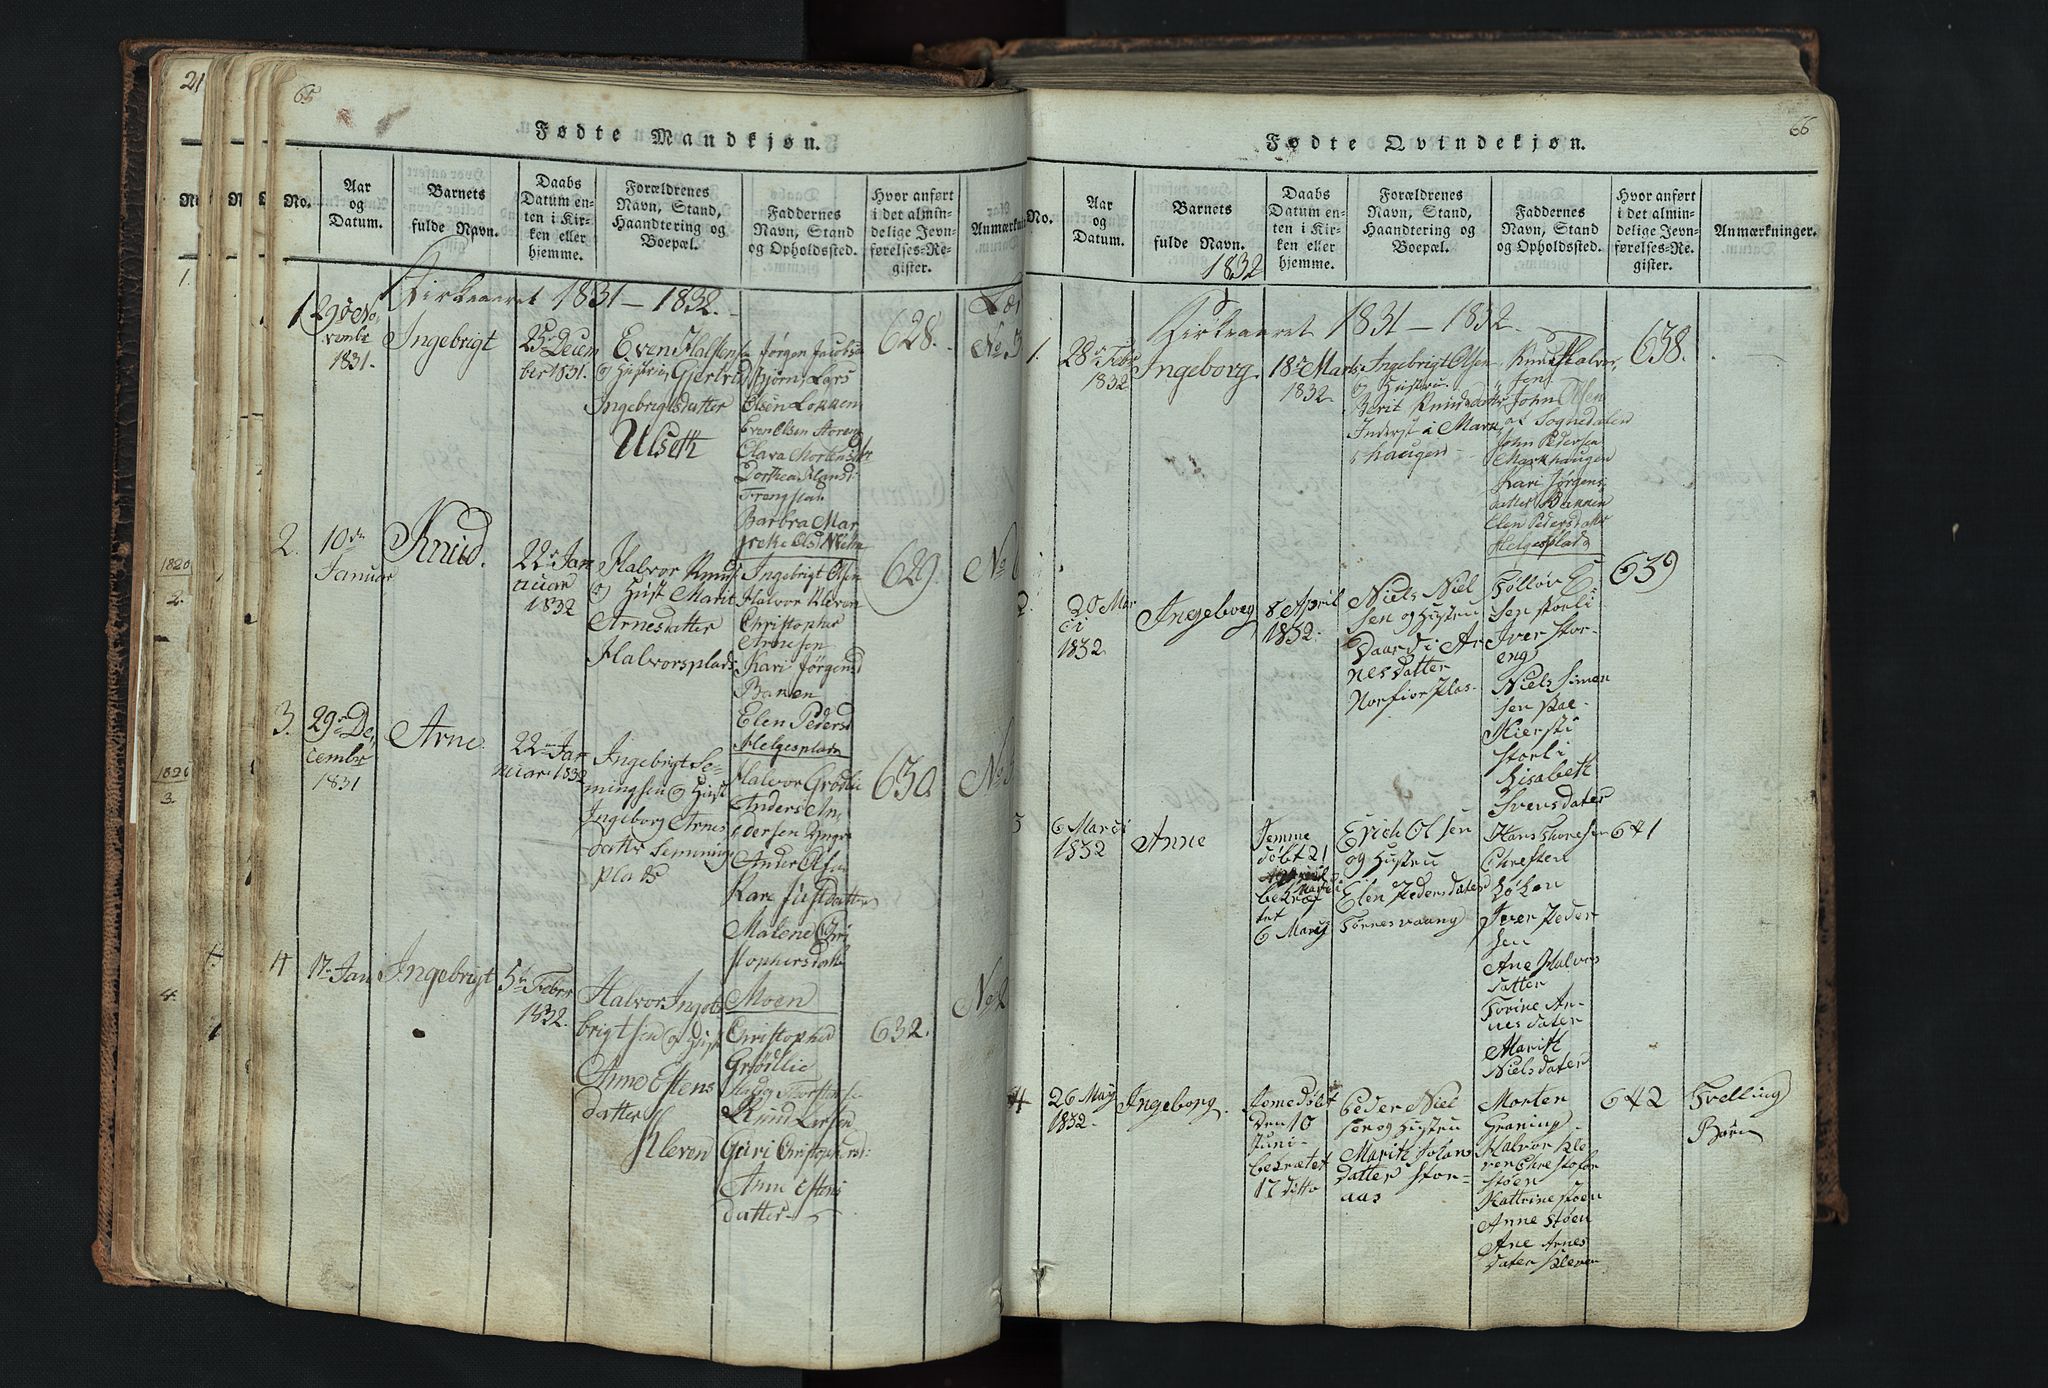 21
65
Fødte Mandkjøn.
No.
Aar
og
Datum.
Barnets
fulde Navn.
Daabs
Datum en-
ten i Kir-
ken eller
hjemme.
Forældrenes
Navn, Stand,
Haandtering og
Boepæl.
Faddernes
Navn, Stand
og Opholdssted.
Hvor anført
i det almin-
delige Jevn-
førelses-Re-
gister.
Kirkeaaret 1831 – 1832.
1
vembr
1831.
Ingebrigt
25 Decem
ber 1831.
Even Halsen
og Hustrue Gjertrud
Ingebrigtsdatter
Ulseth
Jørgen Jacobs
Bjørn Lars
Olsen Løkken
Even Olsen
Clara
Dorthea
Barbra Mar
628.
No 5
2.
10de
Januar
Knud.
22 Jan
nuar
1832
Halvor Knuds
og Hust Marit
Arnesdatter
Halvorsplads
Ingebrigt Olsen
Halvor Kleven
Christopher
Arnesen
Kari Jørgensd
Elen Pedersd
Helgesplads
629.
No 6
3.
29 De
cembr
1831
Arne.
22 Jan
nuar 1832
Ingebrigt Se
mingsen og Hust
Ingeborg Arnes
datter Semming
plads
Halvor Grødli
Anders An
dersen
Ander Olsen
Kari Justdatter
Malene Chri
stophersdatter
Moen
630.
No
4
17 Jan
Ingebrigt
5te Febr
1832.
Halvor Inge
brigtsen og Hust
Anne Estens
datter
Kleven
Christopher
Grødlie
Knud Larsen
Guri Christophersd:
Ann Estens
datter
632.
No 2
1820
2.
1820
3.
4.
66
Fødte Qvindekjøn.
No.
Aar
og
Datum.
Barnets
fulde Navn.
1832
Daabs
Datum en-
ten i Kir-
ken eller
hjemme.
Forældrenes
Navn, Stand,
Haandtering og
Boepæl.
Faddernes
Navn, Stand
og Opholdssted.
Hvor anført
i det almin-
delige Jevn-
førelses-Re-
gister.
Anmærkninger.
Kirkeaaret 1831 – 1832.
1.
28 Febr
1832
Ingeborg
18 Marts
1832.
Ingebrigt Olsen
og Hustru
Berit Knudsdatter
Inderst i Mark
haugen
Knud Halvor
sen
John Olsen
af Sognedalen
John Pedersen
Markhaugen
Kari Jørgens
datter Bakken
Elen Pedersdatter
Helgesplads
638.
2.
20 Mar
ci
1832
Ingeborg
8 April
1832.
Niels Niel
sen og Hustru
Daardi Ar
nesdatter
Norfiorplas
sen Storli
Iver Stor
eng
Niels Simen
sen
Kiersti
Storli
Lisabeth
Svensdater
639
3
6 Marci
1832
Anne
Jemme
døbt 21
bekræf
tet
6 Maij
Erich Olsen
og Hustru
Elen Pedersdater
Tørnesvaang
Chresten
Løken
Iver Peder
sen
Ane Halvors
datter
Torine Ar
nesdater
Marith
Nielsdater
641
4
26 May
1832.
Ingeborg.
Jemedøbt
den 10
Juni
bekrætet
17 ditto
Peder Niel
sen og Hustru
Marith Johans
datter Stor
aas
Morten
Graniup
Halvor Kle
ven Chrestofer
Støen
Kattrine Støen
Anne Støen
Ane Arnes
dater Kleven
642
Tvelling
Børn